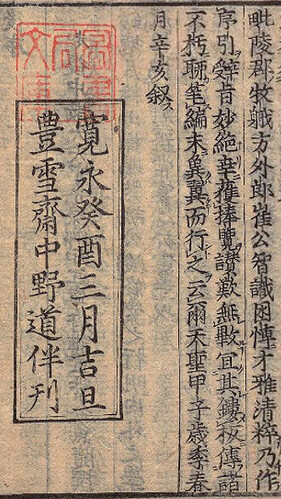 毗陵郡牧軄方外郎崔公智識囦慱才雅清粹乃作
序引辤旨妙絶幸獲捧覽讃歎無斁宜其鏤板傳諸
不朽聊筆編末兾翼而行之云爾天聖甲子歲季春
月辛亥叙
寛永癸酉三月吉旦
豊雪齋中野道伴刋